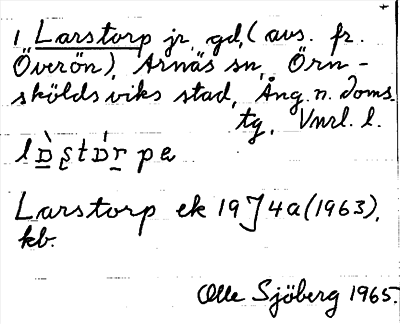 1 Larstorp jr, gd, (avs. fr.
Överön), Arnäs sn, Örn-
sköldsviks stad, Ång. n. doms.
tg, Vnrl. l.
Larstorp ek 19J4a (1963),
kb.
Olle Sjöberg 1965.